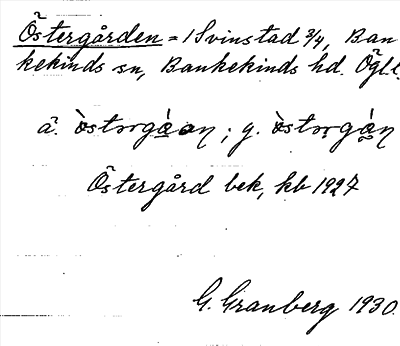 Östergården = 1 Svinstad 3/4, Ban
kekinds sn, Bankekinds hd. Ögl.
ä. òstərgá̱an ; y. òstərgá̱n
Östergård bek, kb 1927
G. Granberg 1930.